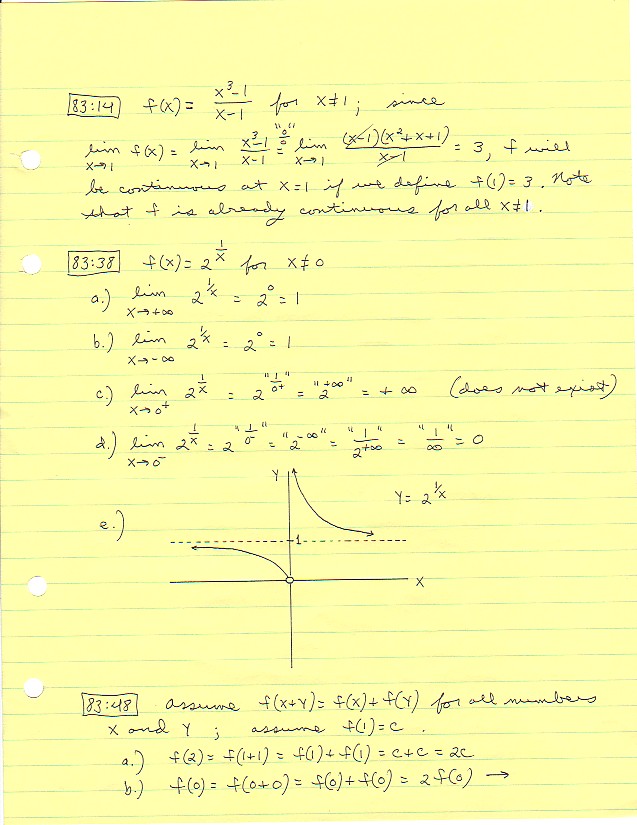 83:14 f(x) = (x³-1)/(x-1) for x≠1 ; since
lim x→1 f(x) = lim x→1 (x³-1)/(x-1) "0/0" = lim x→1 (x-1)(x²+x+1)/(x-1) = 3, f will
be continuous at x=1 if we define f(1)=3. Note
that f is already continuous for all x≠1.
83:38 f(x) = 2^(1/x) for x≠0
a.) lim x→+∞ 2^(1/x) = 2^0 = 1
b.) lim x→-∞ 2^(1/x) = 2^0 = 1
c.) lim x→0⁺ 2^(1/x) = 2^"1/0⁺" = "2^(+∞)" = +∞ (does not exist)
d.) lim x→0⁻ 2^(1/x) = 2^"1/0⁻" = "2^(-∞)" = "1/2^(+∞)" = "1/∞" = 0
Y
Y = 2^(1/x)
e.)
1
X
83:48 assume f(x+y) = f(x) + f(y) for all numbers
x and y ; assume f(1) = c .
a.) f(2) = f(1+1) = f(1) + f(1) = c+c = 2c
b.) f(0) = f(0+0) = f(0) + f(0) = 2f(0) →